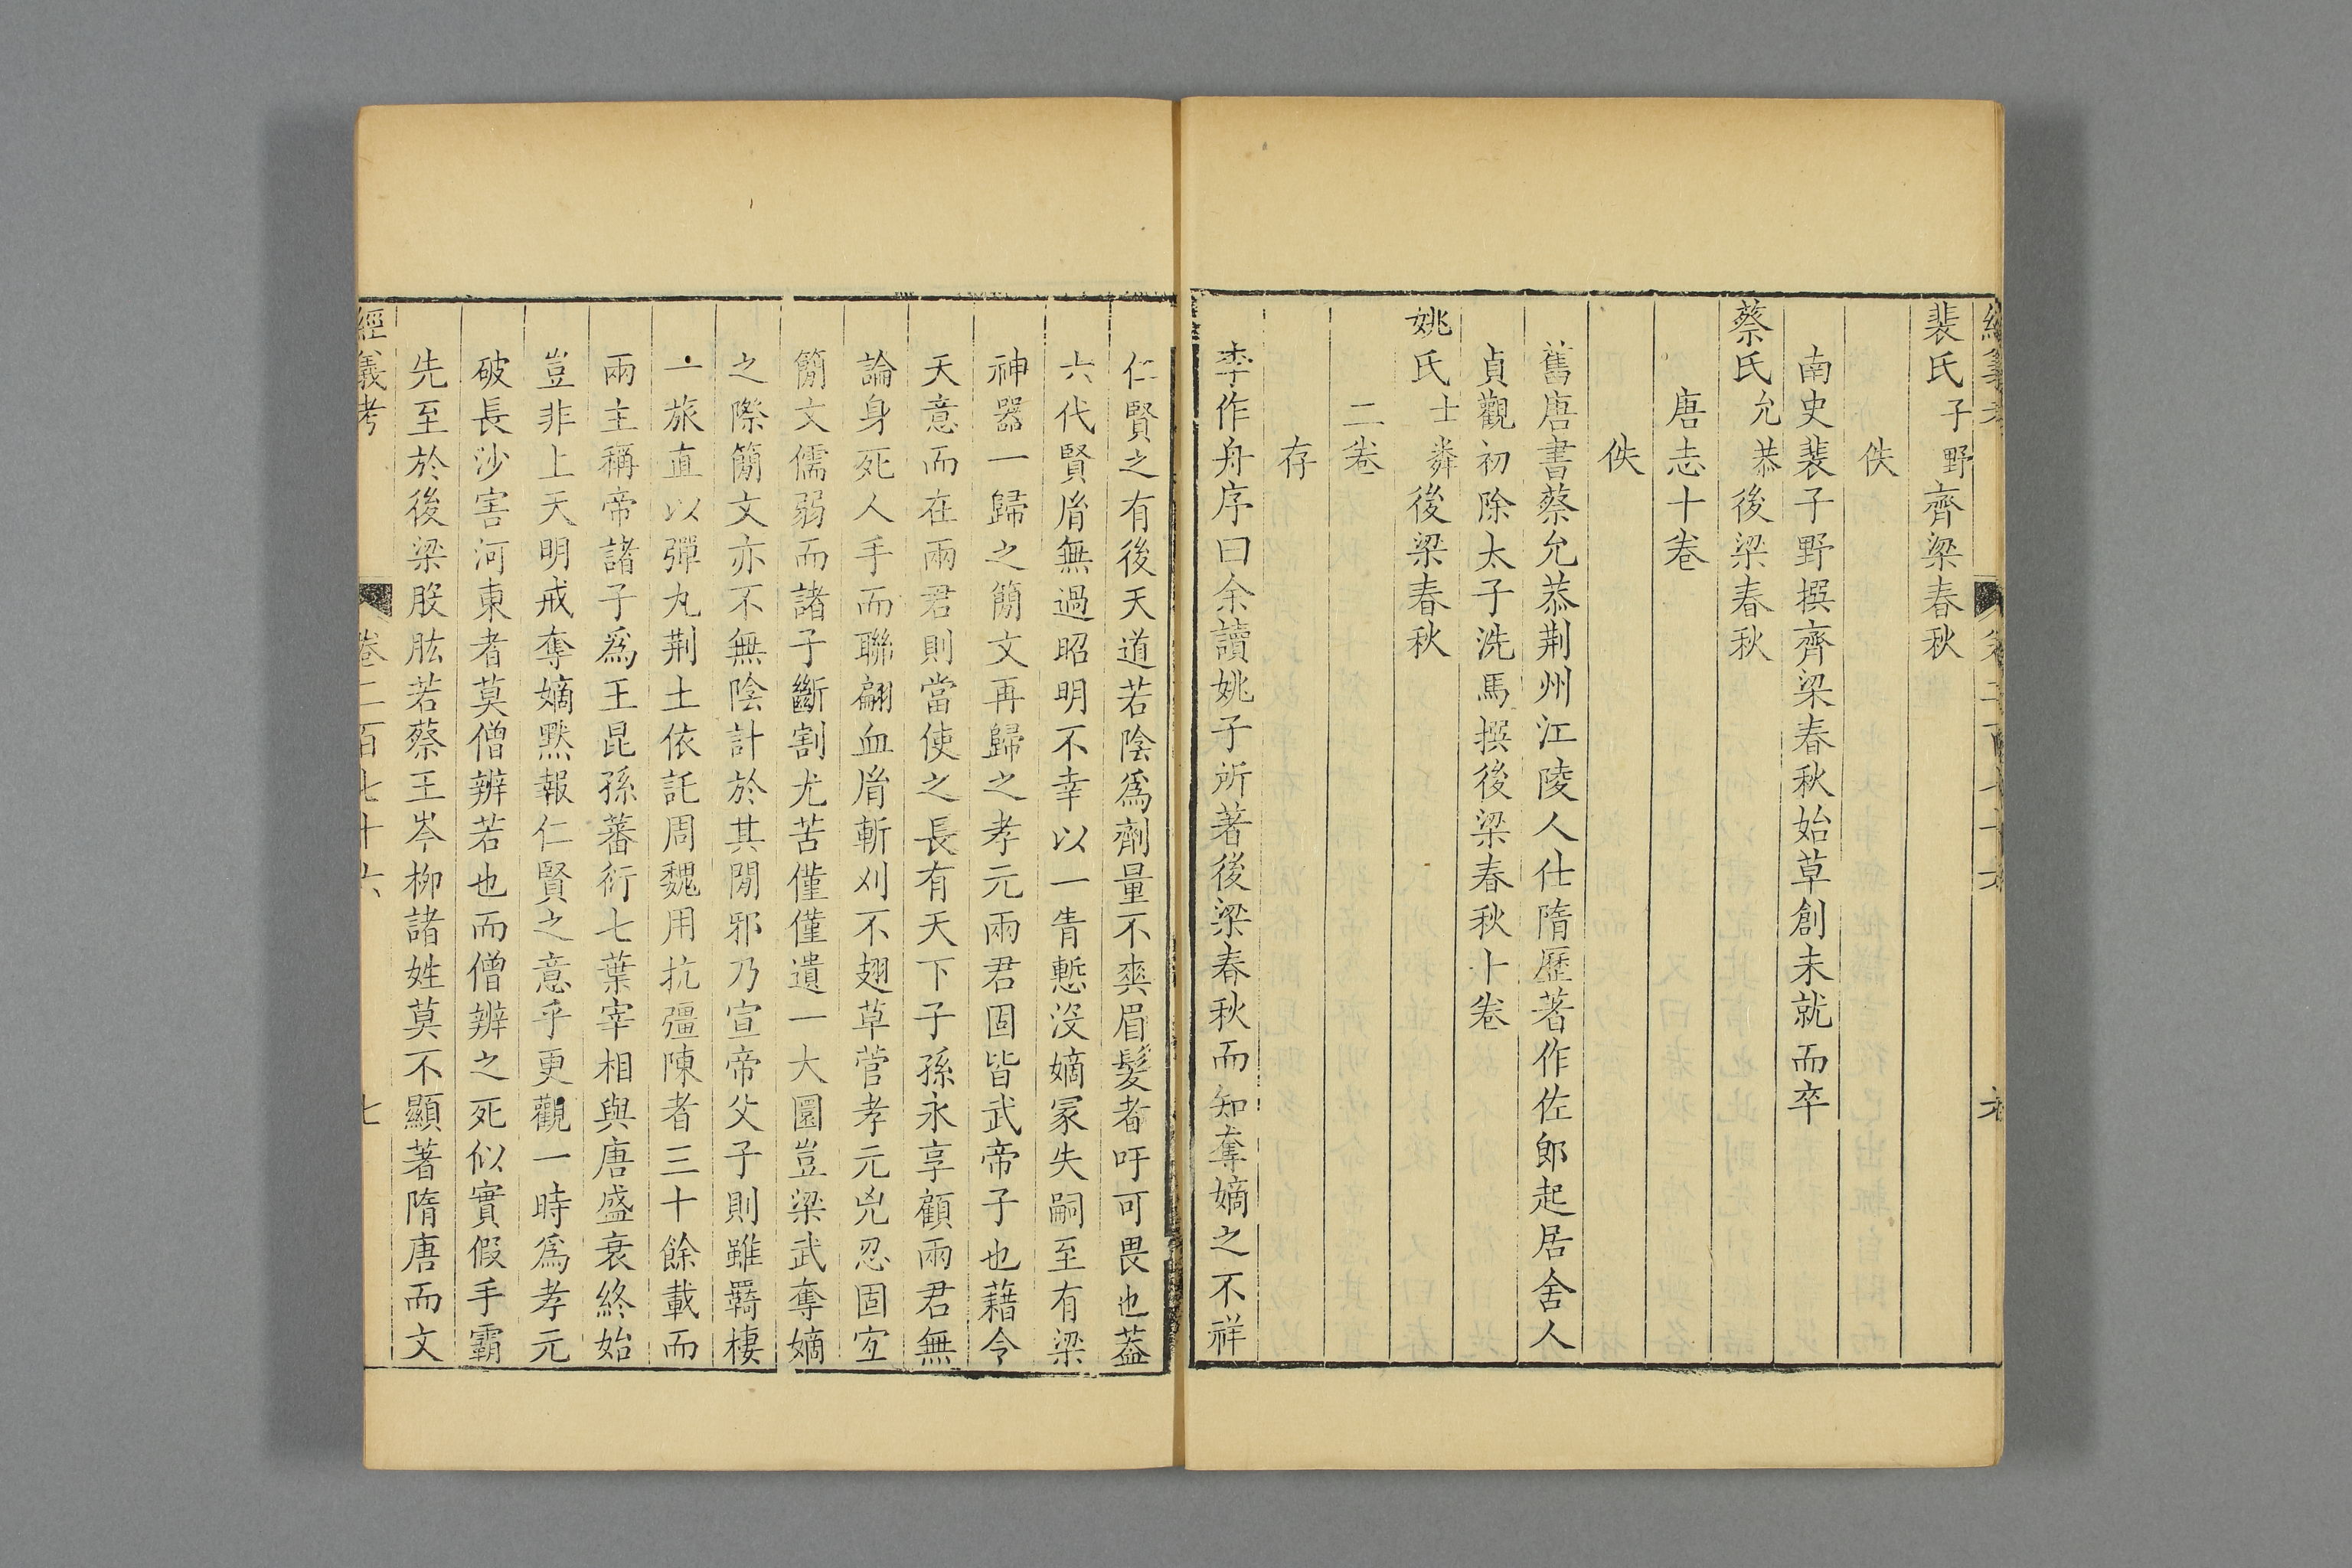 裴氏子野齊梁春秋
佚
南史裴子野撰齊梁春秋始草創未就而卒
蔡氏允恭後梁春秋
唐志十卷
佚
舊唐書蔡允恭荆州江陵人仕隋歷著作佐郎起居舍人
貞觀初除太子洗馬撰後梁春秋十卷
姚氏士粦後梁春秋
二卷
存
李作舟序曰余讀姚子所著後梁春秋而知奪嫡之不祥
仁賢之有後天道若陰爲劑量不爽眉髮者吁可畏也葢
六代賢脀無過昭明不幸以一眚慙沒嫡冢失嗣至有梁
神器一歸之簡文再歸之孝元兩君固皆武帝子也藉令
天意而在兩君則當使之長有天下子孫永享顧兩君無
論身死人手而聯翩血脀斬刈不翅草菅孝元兇忍固宜
簡文儒弱而諸子斷割尤苦僅僅遺一大圜豈梁武奪嫡
之際簡文亦不無陰計於其閒邪乃宣帝父子則雖羇棲
一旅直以彈丸荆土依託周魏用抗彊陳者三十餘載而
兩主稱帝諸子爲王昆孫蕃衍七葉宰相與唐盛衰終始
豈非上天明戒奪嫡黙報仁賢之意乎更觀一時爲孝元
破長沙害河東者莫僧辨若也而僧辨之死似實假手霸
先至於後梁股肱若蔡王岑柳諸姓莫不顯著隋唐而文
經義考 卷二百七十六 七